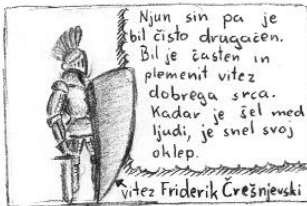 Njun sin pa je
bil čisto drugačen.
Bil je časten in
plemenit vitez
dobrega srca.
Kadar je šel med
ljudi, je snel svoj
oklep.
vitez Friderik Črešnjevski